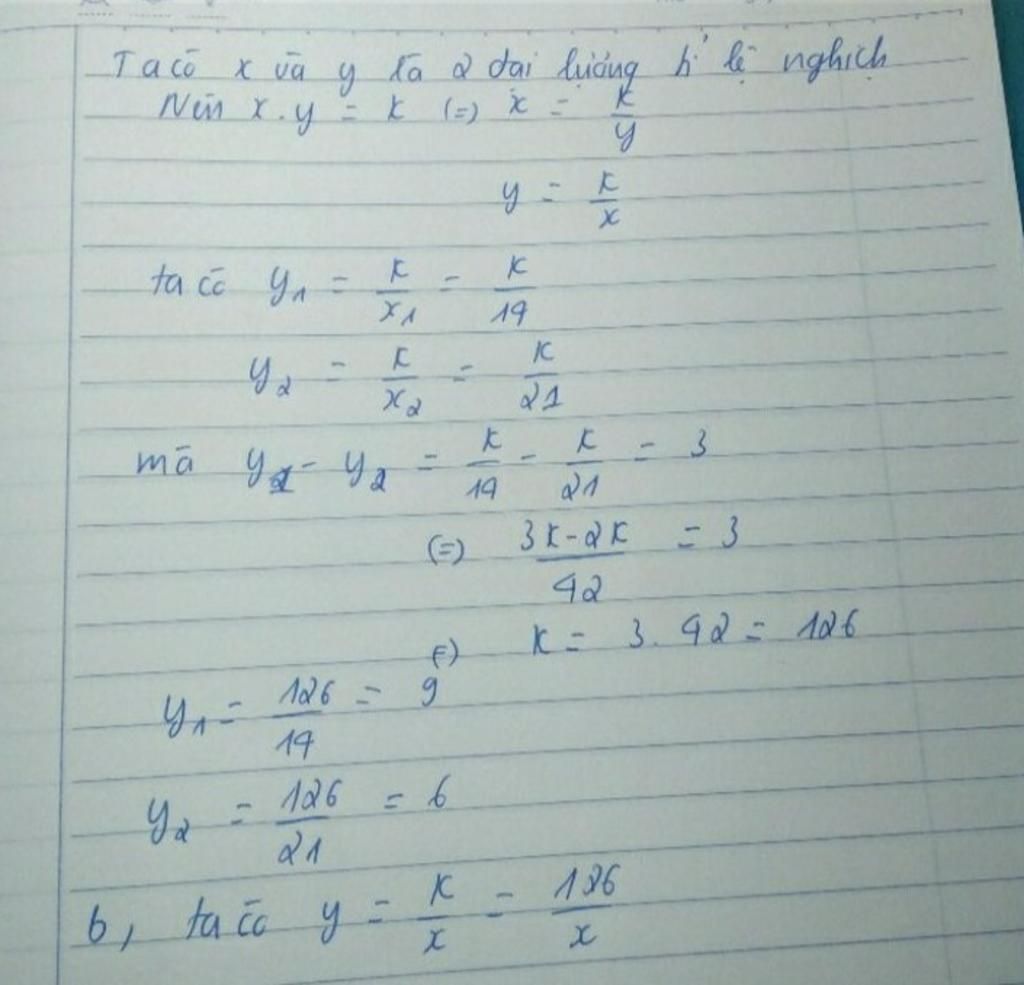 Ta có x và y là 2 đại lượng tỉ lệ nghịch
Nên x . y = k (=) x = k/y
y = k/x
ta có y₁ = k/x₁ = k/14
y₂ = k/x₂ = k/21
mà y₁ - y₂ = k/14 - k/21 = 3
(=) (3k-2k)/42 = 3
(=) k = 3. 42 = 126
y₁ = 126/14 = 9
y₂ = 126/21 = 6
b, ta có y = k/x = 126/x